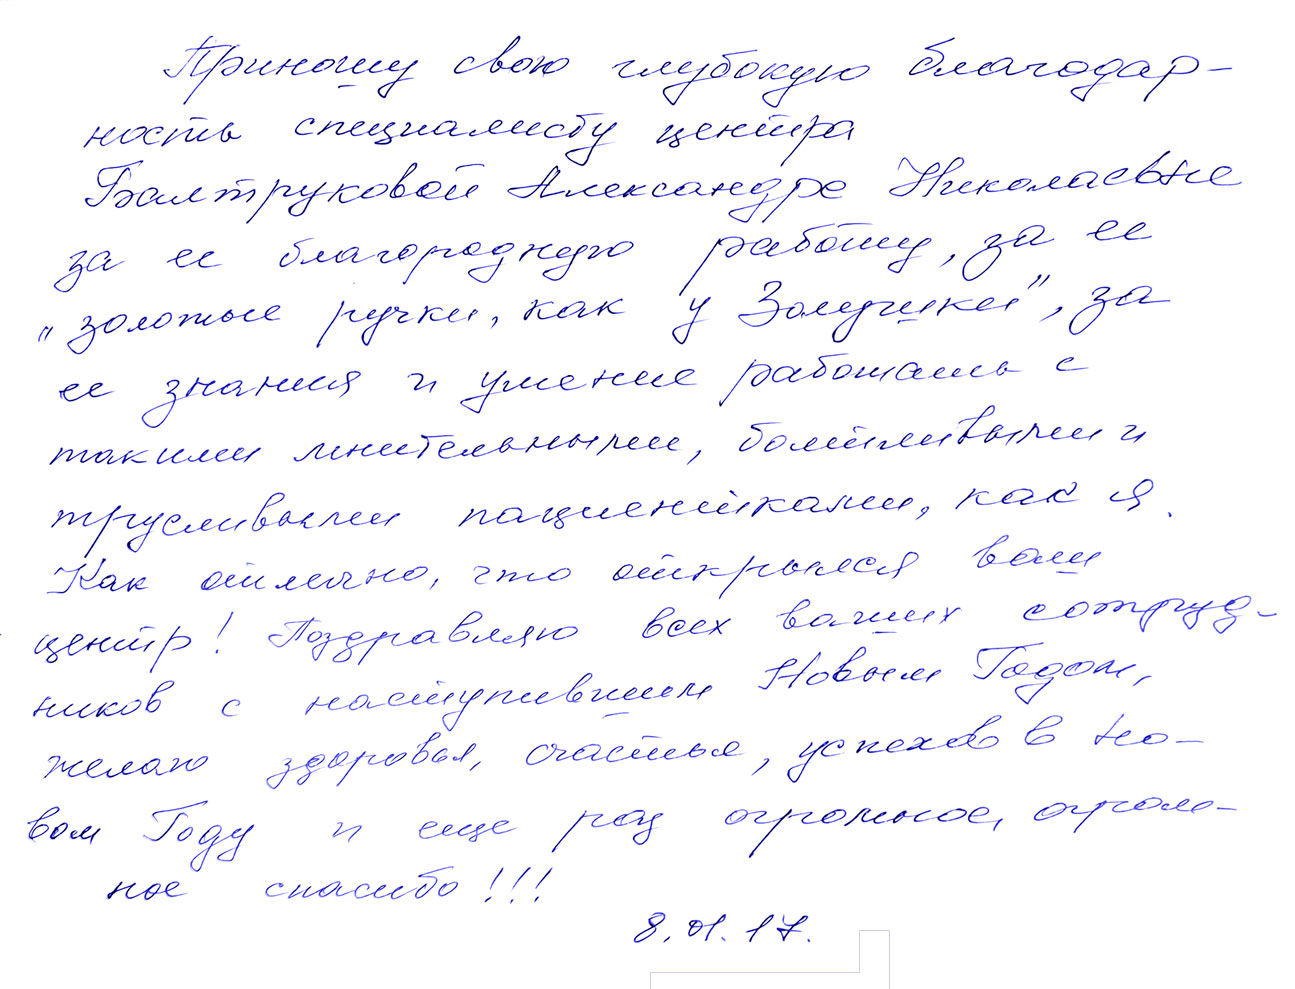 Приношу свою глубокую благодар-
ность специалисту центра
Балтруковой Александре Николаевне
за ее благородную работу, за ее
„золотые ручки, как у Золушки", за
ее знания и умение работать с
такими мнительными, болтливыми и
трусливыми пациентками, как я.
Как отлично, что открылся ваш
центр! Поздравляю всех ваших сотруд-
ников с наступившим Новым Годом,
желаю здоровья, счастья, успехов в Но-
вом Году и еще раз огромное, огром-
ное спасибо!!!
8.01.17.